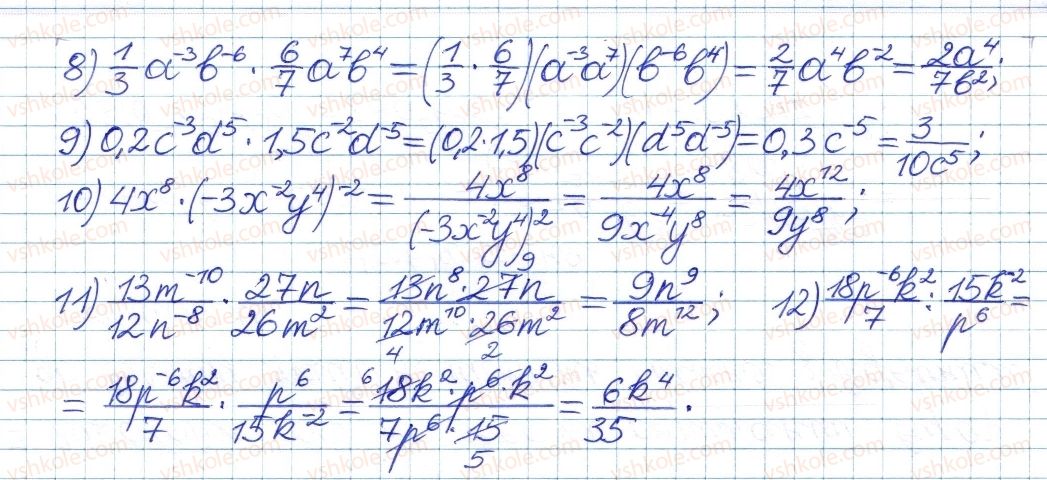 8) 1/3 a⁻³b⁻⁶ · 6/7 a⁷b⁴ = (1/3 · 6/7)(a⁻³a⁷)(b⁻⁶b⁴) = 2/7 a⁴b⁻² = 2a⁴/7b²;
9) 0,2c⁻³d⁵ · 1,5c⁻²d⁻⁵ = (0,2·1,5)(c⁻³c⁻²)(d⁵d⁻⁵) = 0,3c⁻⁵ = 3/10c⁵;
10) 4x⁸ · (-3x⁻²y⁴)⁻² = 4x⁸/(-3x⁻²y⁴)² = 4x⁸/9x⁻⁴y⁸ = 4x¹²/9y⁸;
11) 13m⁻¹⁰/12n⁻⁸ · 27n/26m² = 13n⁸·27n/12m¹⁰·26m² = 9n⁹/8m¹²; 12) 18p⁻⁶k²/7 : 15k⁻²/p⁶ =
= 18p⁻⁶k²/7 · p⁶/15k⁻² = 18k²·p⁶·k²/7p⁶·15 = 6k⁴/35.